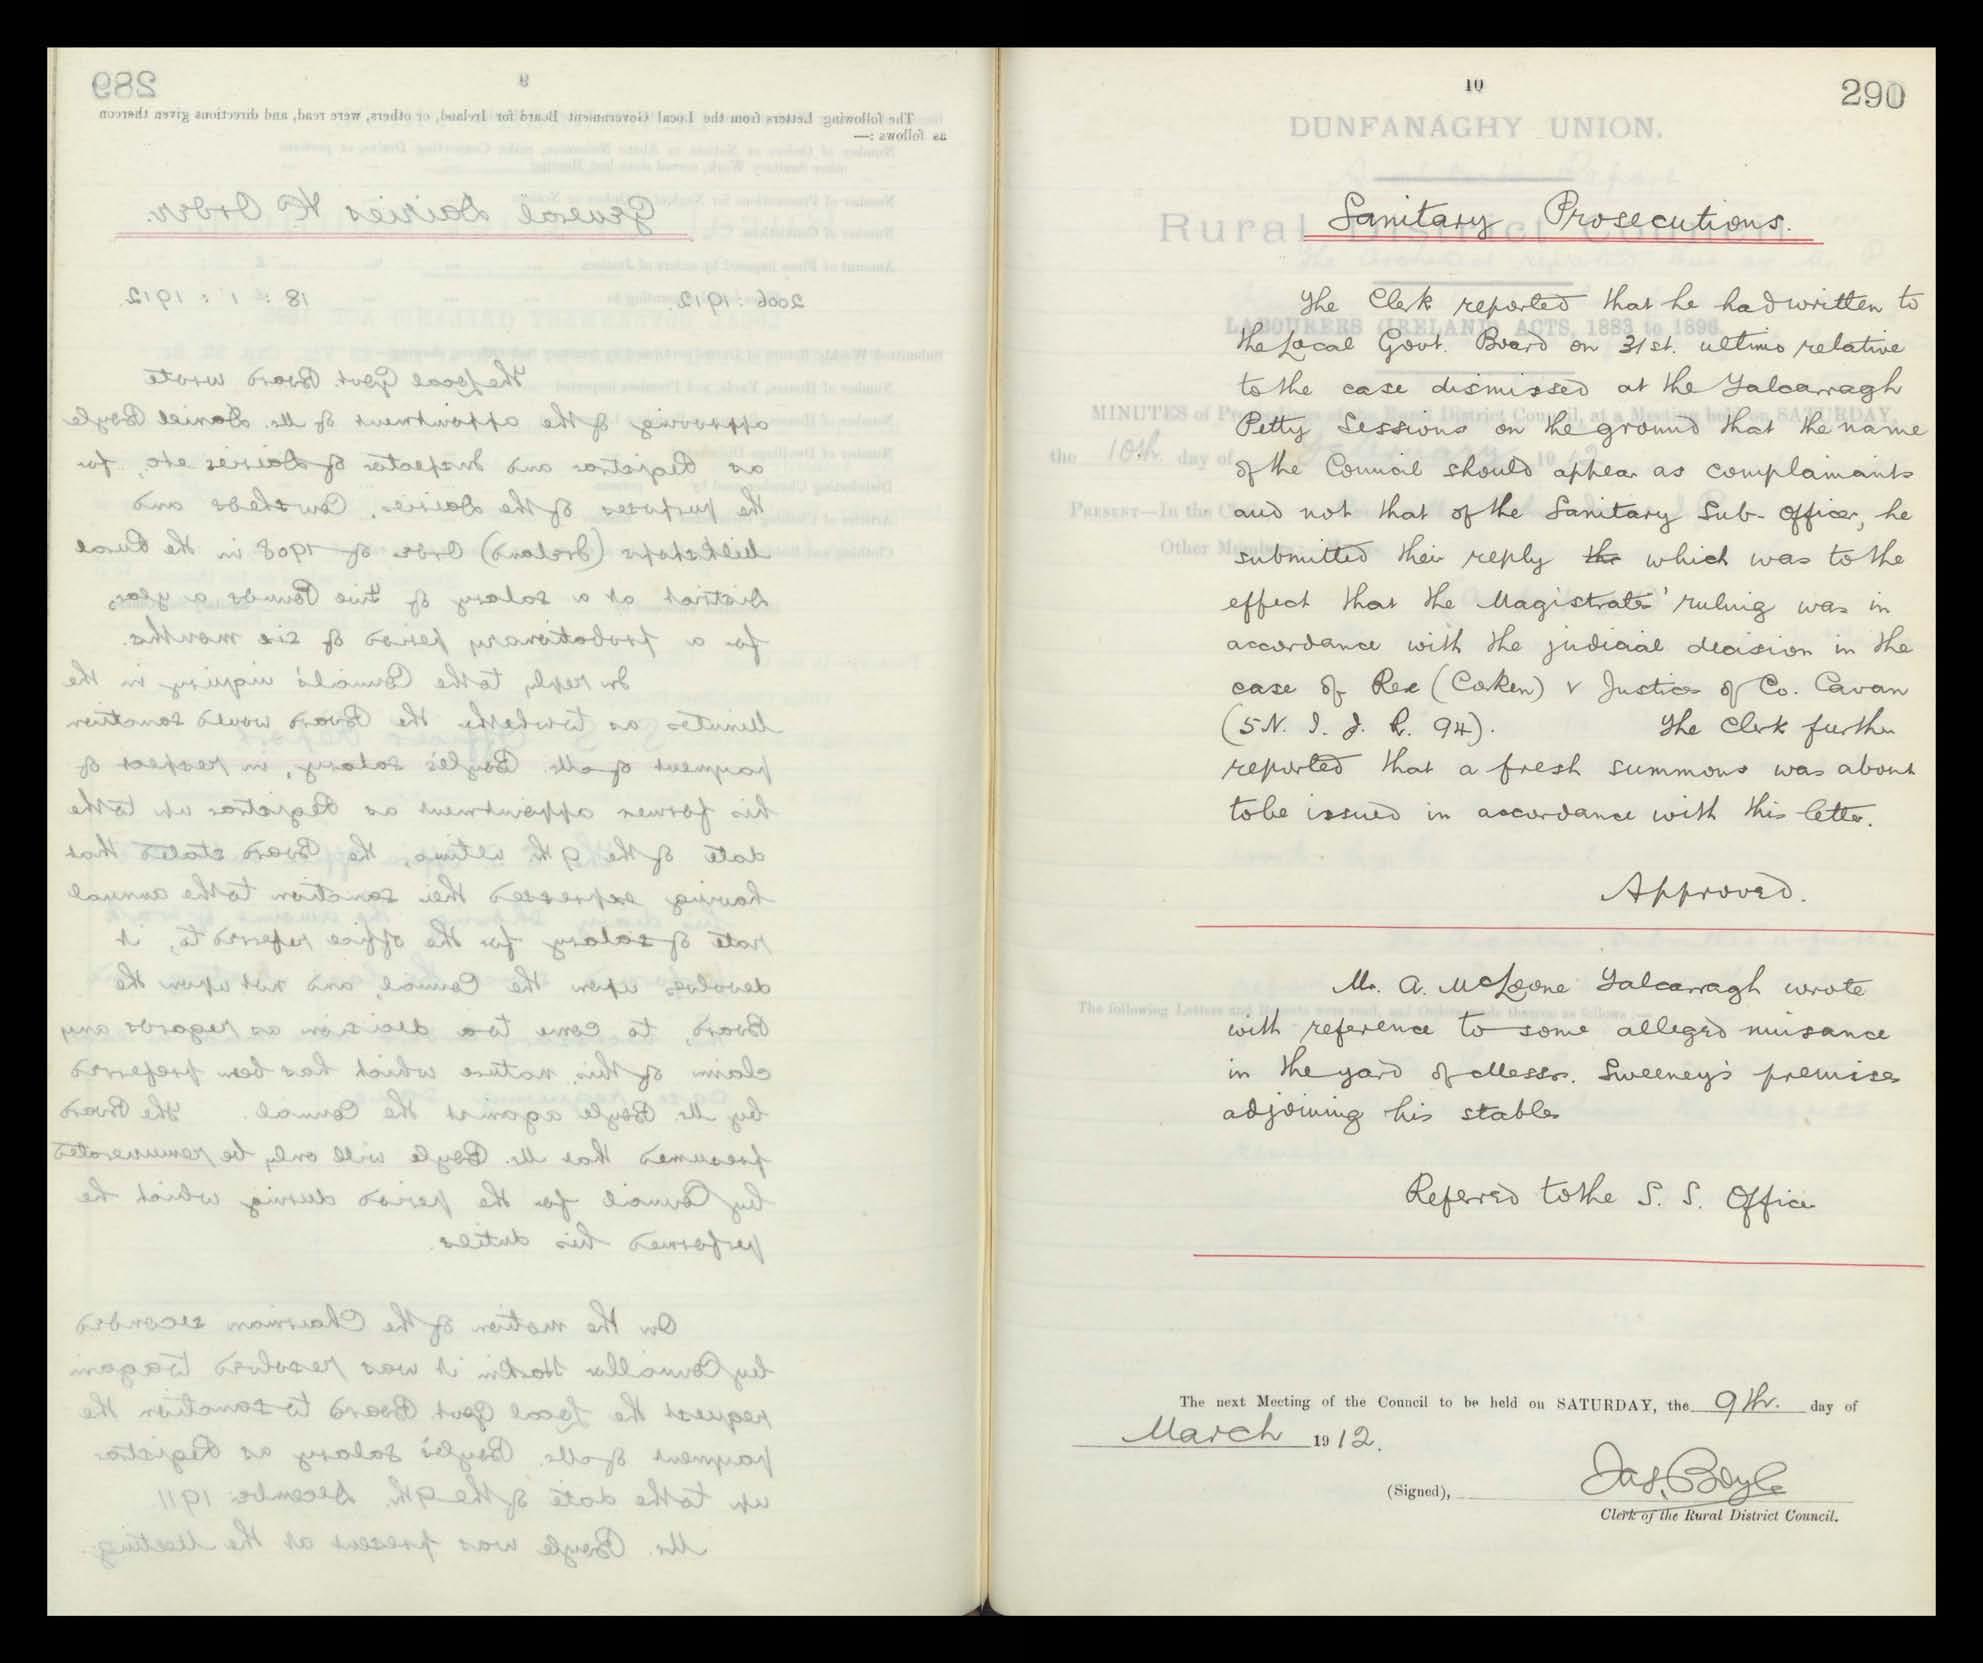 289
9
The following Letters from the Local Government Board for Ireland, or others, were read, and directions given thereon
as follows :—
General Dairies &c Order.
2006 : 1912. 18 : 1 : 1912.
The Local Govt. Board wrote
approving of the appointment of Mr. Daniel Boyle
as Registrar and Inspector of Dairies etc, for
the purposes of the Dairies, Cowsheds and
Milkshops (Ireland) Order of 1908 in the Rural
District at a salary of Five Pounds a year,
for a probationary period of six months.
In reply to the Council's inquiry in the
Minutes as to whether the Board would sanction
payment of Mr. Boyle's salary, in respect of
his former appointment as Registrar up to the
date of the 9th. ultimo, the Board stated that
having expressed their sanction to the annual
rate of salary for the office referred to, it
devolves upon the Council, and not upon the
Board, to come to a decision as regards any
claim of this nature which has been preferred
by Mr. Boyle against the Council. The Board
presumes that Mr. Boyle will only be remunerated
by Council for the period during which he
performed his duties.
On the motion of the Chairman seconded
by Councillor Harkin it was resolved to again
request the Local Govt. Board to sanction the
payment of Mr. Boyle's salary as Registrar
up to the date of the 9th. December 1911
Mr. Boyle was present at the Meeting.
10
290
DUNFANAGHY UNION.
Rural District Council
Sanitary Prosecutions.
The Clerk reported that he had written to
LABOURERS (IRELAND) ACTS, 1883 to 1896.
the Local Govt. Board on 31st. ultimo relative
to the case dismissed at the Falcarragh
MINUTES of Proceedings of the Rural District Council, at a Meeting held on SATURDAY,
Petty Sessions on the ground that the name
the 10th. day of February 1912
of the Council should appear as complainants
PRESENT—In the
and not that of the Sanitary Sub-Officer, he
Other Members
submitted their reply the which was to the
effect that the Magistrates' ruling was in
accordance with the judicial decision in the
case of Rex (Corken) v Justices of Co. Cavan
(5 N. I. J. R. 94). The Clerk further
reported that a fresh summons was about
to be issued in accordance with this letter.
Approved.
Mr. A. McLoone Falcarragh wrote
The following Letters and Reports were read, and Orders made thereon as follows :—
with reference to some alleged nuisance
in the yard of Messrs. Sweeney's premises
adjoining his stables
Referred to the S. S. Officer
The next Meeting of the Council to be held on SATURDAY, the 9th. day of
March 1912.
(Signed), Jas. Boyle
Clerk of the Rural District Council.